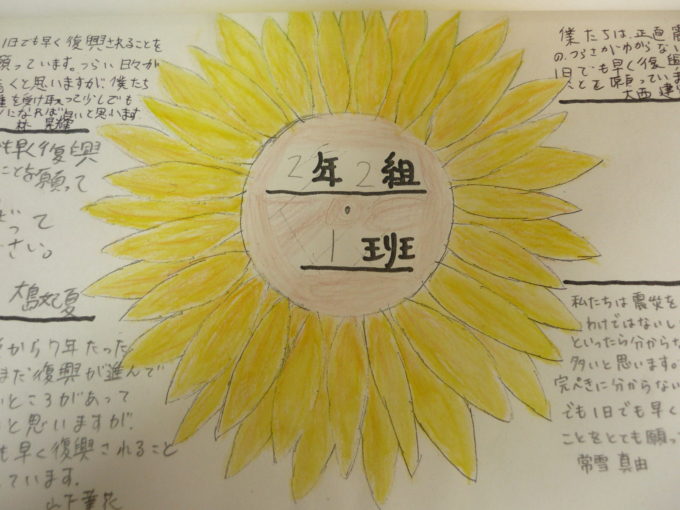 1日でも早く復興されることを
願っています。つらい日々が
くと思いますが、僕たち
を受け取って少しでも
になれば良いと思います
林
も早く復興
こと願って
って
さい。
大島妃夏
から7年たった
まだ復興が進んで
いところがあって
と思いますが、
も早く復興されること
っています。
山下
2年2組
1班
僕たちは、正直
の、つらさがわからない
1日でも早く復興
ことを願っていま
大西
私たちは震災を
わけではないし
といったら分からな
多いと思います。
完ぺきに分からない
でも1日でも早く
ことをとても願っ
常雪 真由